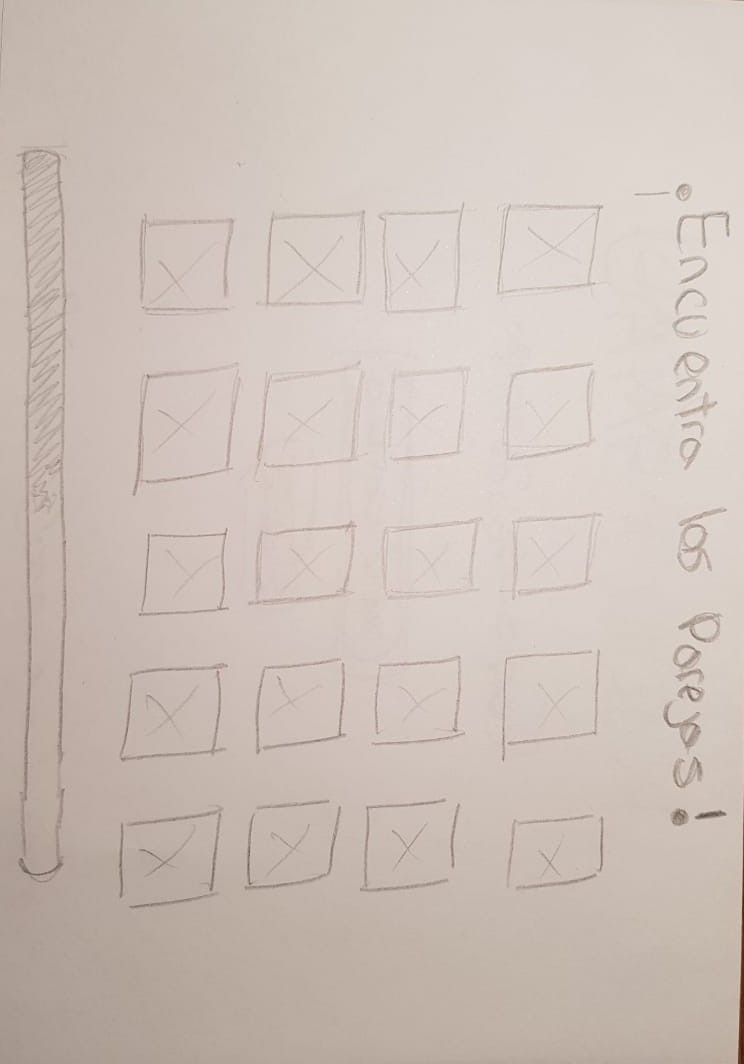 ¡Encuentra las Parejas!